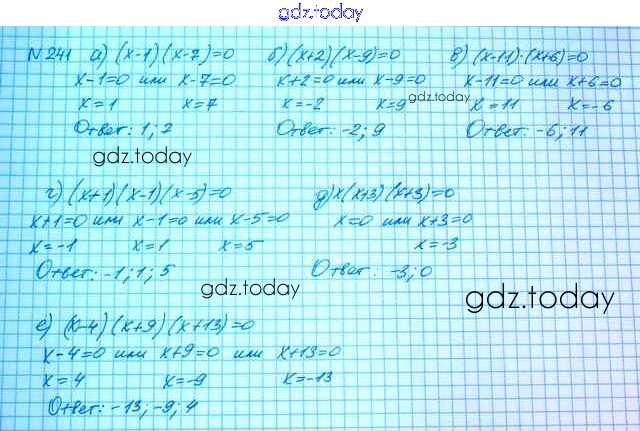 gdz.today
N 241 а) (x-1)(x-7)=0 б) (x+2)(x-9)=0 в) (x-11)·(x+6)=0
x-1=0 или x-7=0 x+2=0 или x-9=0 x-11=0 или x+6=0
x=1 x=7 x=-2 x=9 gdz.today x=11 x=-6
Ответ: 1; 2 Ответ: -2; 9 Ответ: -6; 11
gdz.today
г) (x+1)(x-1)(x-5)=0 д) x(x+3)(x+3)=0
x+1=0 или x-1=0 или x-5=0 x=0 или x+3=0
x=-1 x=1 x=5 x=-3
Ответ: -1; 1; 5 Ответ: -3; 0
gdz.today gdz.today
е) (x-4)(x+9)(x+13)=0
x-4=0 или x+9=0 или x+13=0
x=4 x=-9 x=-13
Ответ: -13; -9; 4